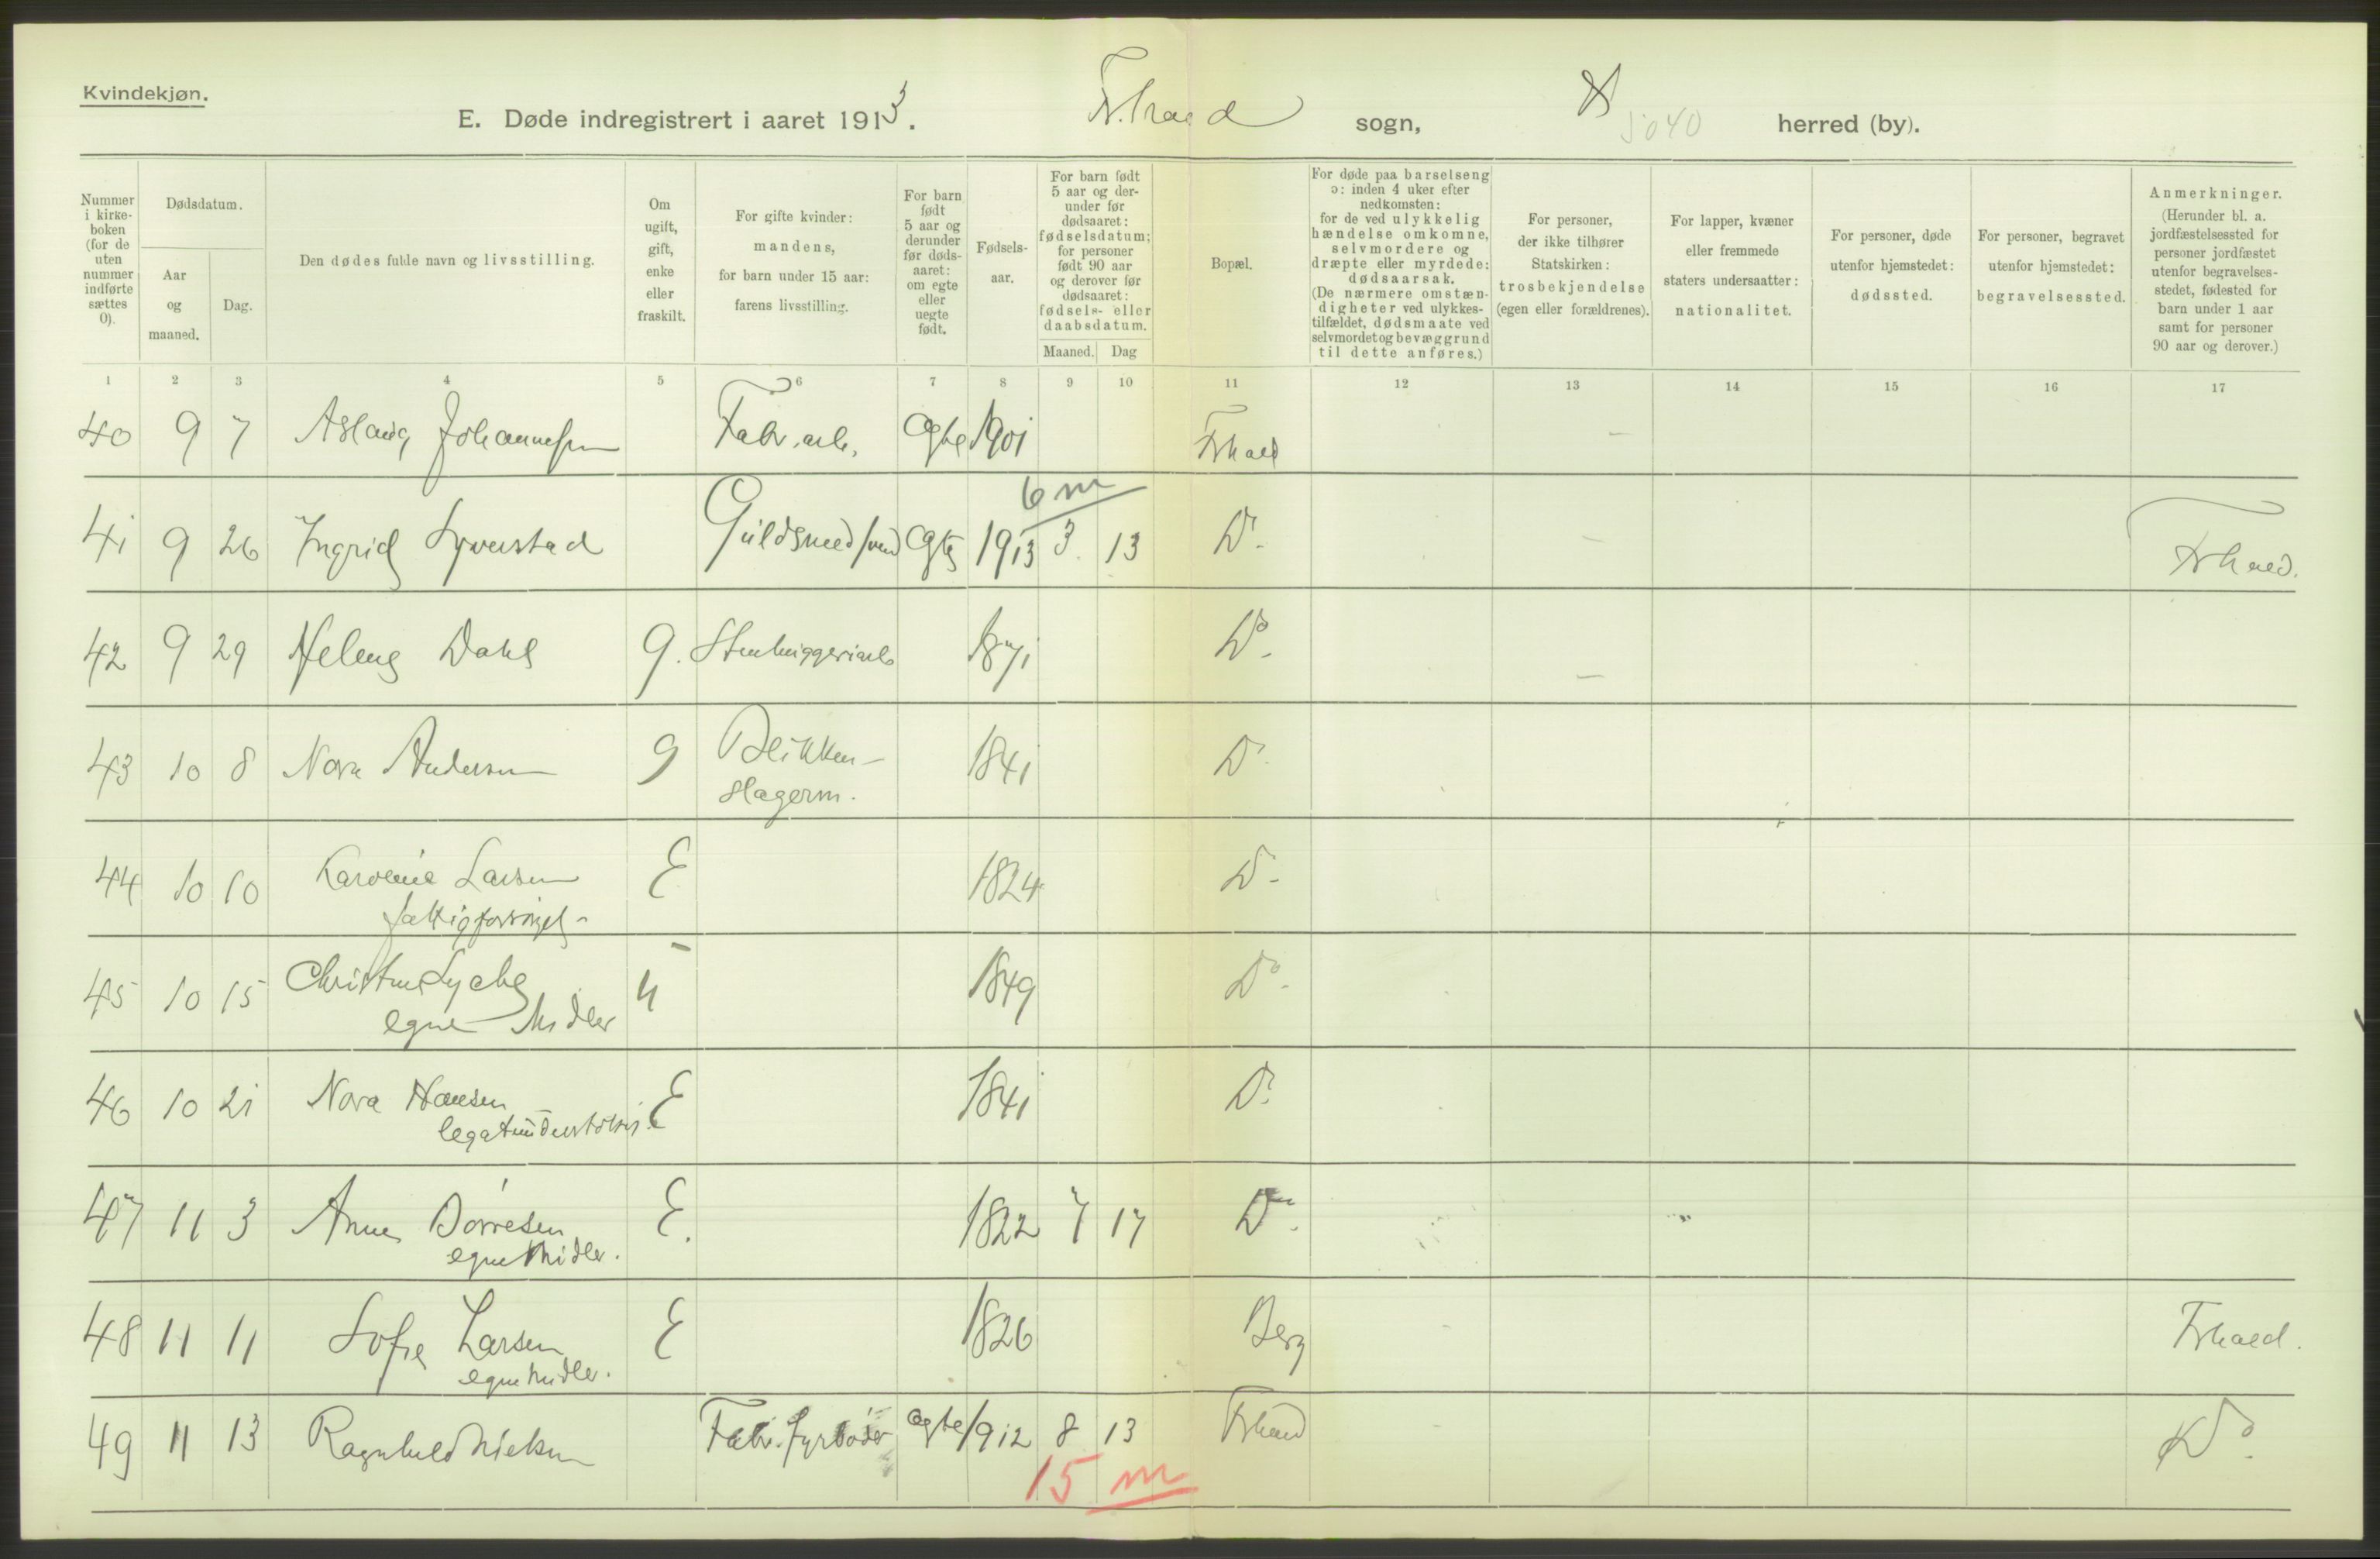 Kvindekjøn.
E. Døde indregistrert i aaret 1913. Fr.hald sogn, 5040 herred (by).
Nummer i kirke-boken (for de uten nummer indførte sættes 0).
Dødsdatum.
Aar og maaned.
Dag.
Den dødes fulde navn og livsstilling.
Om ugift, gift, enke eller fraskilt.
For gifte kvinder: mandens, for barn under 15 aar: farens livsstilling.
For barn født 5 aar og derunder før døds-aaret: om egte eller uegte født.
Fødsels-aar.
For barn født 5 aar og der-under før dødsaaret: fødselsdatum; for personer født 90 aar og derover før dødsaaret: fødsels- eller daabsdatum.
Maaned. Dag
Bopæl.
For døde paa barselseng ɔ: inden 4 uker efter nedkomsten: for de ved ulykkelig hændelse omkomne, selvmordere og dræpte eller myrdede: dødsaarsak. (De nærmere omstæn-digheter ved ulykkes-tilfældet, dødsmaate ved selvmordet og bevæggrund til dette anføres.)
For personer, der ikke tilhører Statskirken: trosbekjendelse (egen eller forældrenes).
For lapper, kvæner eller fremmede staters undersaatter: nationalitet.
For personer, døde utenfor hjemstedet: dødssted.
For personer, begravet utenfor hjemstedet: begravelsessted.
Anmerkninger. (Herunder bl. a. jordfæstelsessted for personer jordfæstet utenfor begravelses-stedet, fødested for barn under 1 aar samt for personer 90 aar og derover.)
1 2 3 4 5 6 7 8 9 10 11 12 13 14 15 16 17
40 9 7 Aslaug Johannesen Fabr.arb. Egte 1901 Frhald
6 m
41 9 26 Ingrid Syverstad Guldsmedsvend Egte 1913 3 13 Do. Frhald.
42 9 29 Helene Dahl g. Stenhuggeriarb 1871 Do.
43 10 8 Nora Andersen g Blikken-
slagerm. 1841 Do.
44 10 10 Karoline Larsen E 1824 Do.
fattigforsørget
45 10 15 Christine Lyche u 1849 Do.
egne Midler
46 10 21 Nora Hansen E 1841 Do.
legatunderstøttet
47 11 3 Anne Dørresen E. 1822 7 17 Do.
egne Midler.
48 11 11 Sofie Larsen E 1826 Berg Frhald.
egne Midler.
49 11 13 Ragnhild Nielsen Fabr.fyrbøder egte 1912 8 13 Frhald Do.
15 m